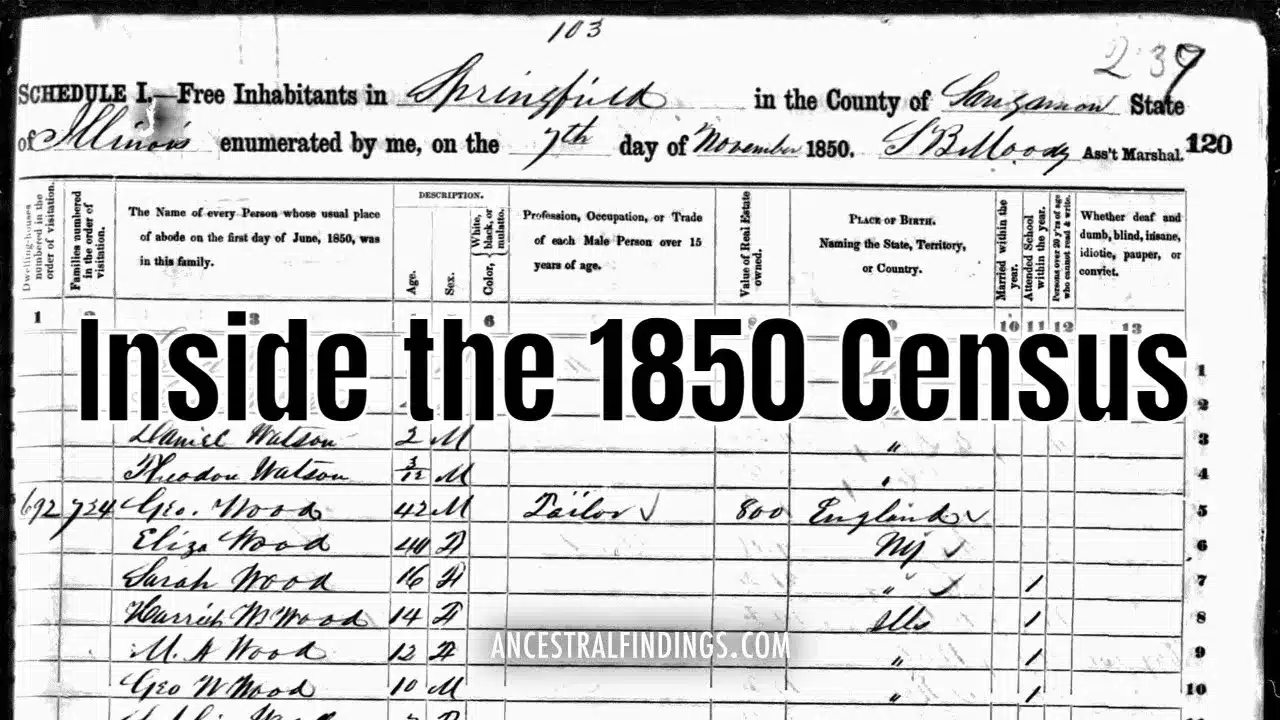 103
239
SCHEDULE I.—Free Inhabitants in Springfield in the County of Sangamon State
of Illinois enumerated by me, on the 7th day of November 1850. S B Moody Ass't Marshal. 120
Dwelling-houses numbered in the order of visitation.
Families numbered in the order of visitation.
The Name of every Person whose usual place
of abode on the first day of June, 1850, was
in this family.
DESCRIPTION.
Age.
Sex.
Color, White, black, or mulatto.
Profession, Occupation, or Trade
of each Male Person over 15
years of age.
Value of Real Estate owned.
PLACE OF BIRTH.
Naming the State, Territory,
or Country.
Married within the year.
Attended School within the year.
Persons over 20 y'rs of age who cannot read & write.
Whether deaf and
dumb, blind, insane,
idiotic, pauper, or
convict.
1 3 6 9 10 11 12 13
Inside the 1850 Census
1
2
Daniel Watson 2 M " 3
Theodon Watson 3/12 M " 4
692 724 Geo. Wood 42 M Tailor ✓ 800 England ✓ 5
Eliza Wood 40 F NY ✓ 6
Sarah Wood 16 F " ✓ 1 7
Harriet M Wood 14 F Ills 1 8
M. A Wood 12 F " 1 9
Geo W Wood 10 M " 1 10
ANCESTRALFINDINGS.COM